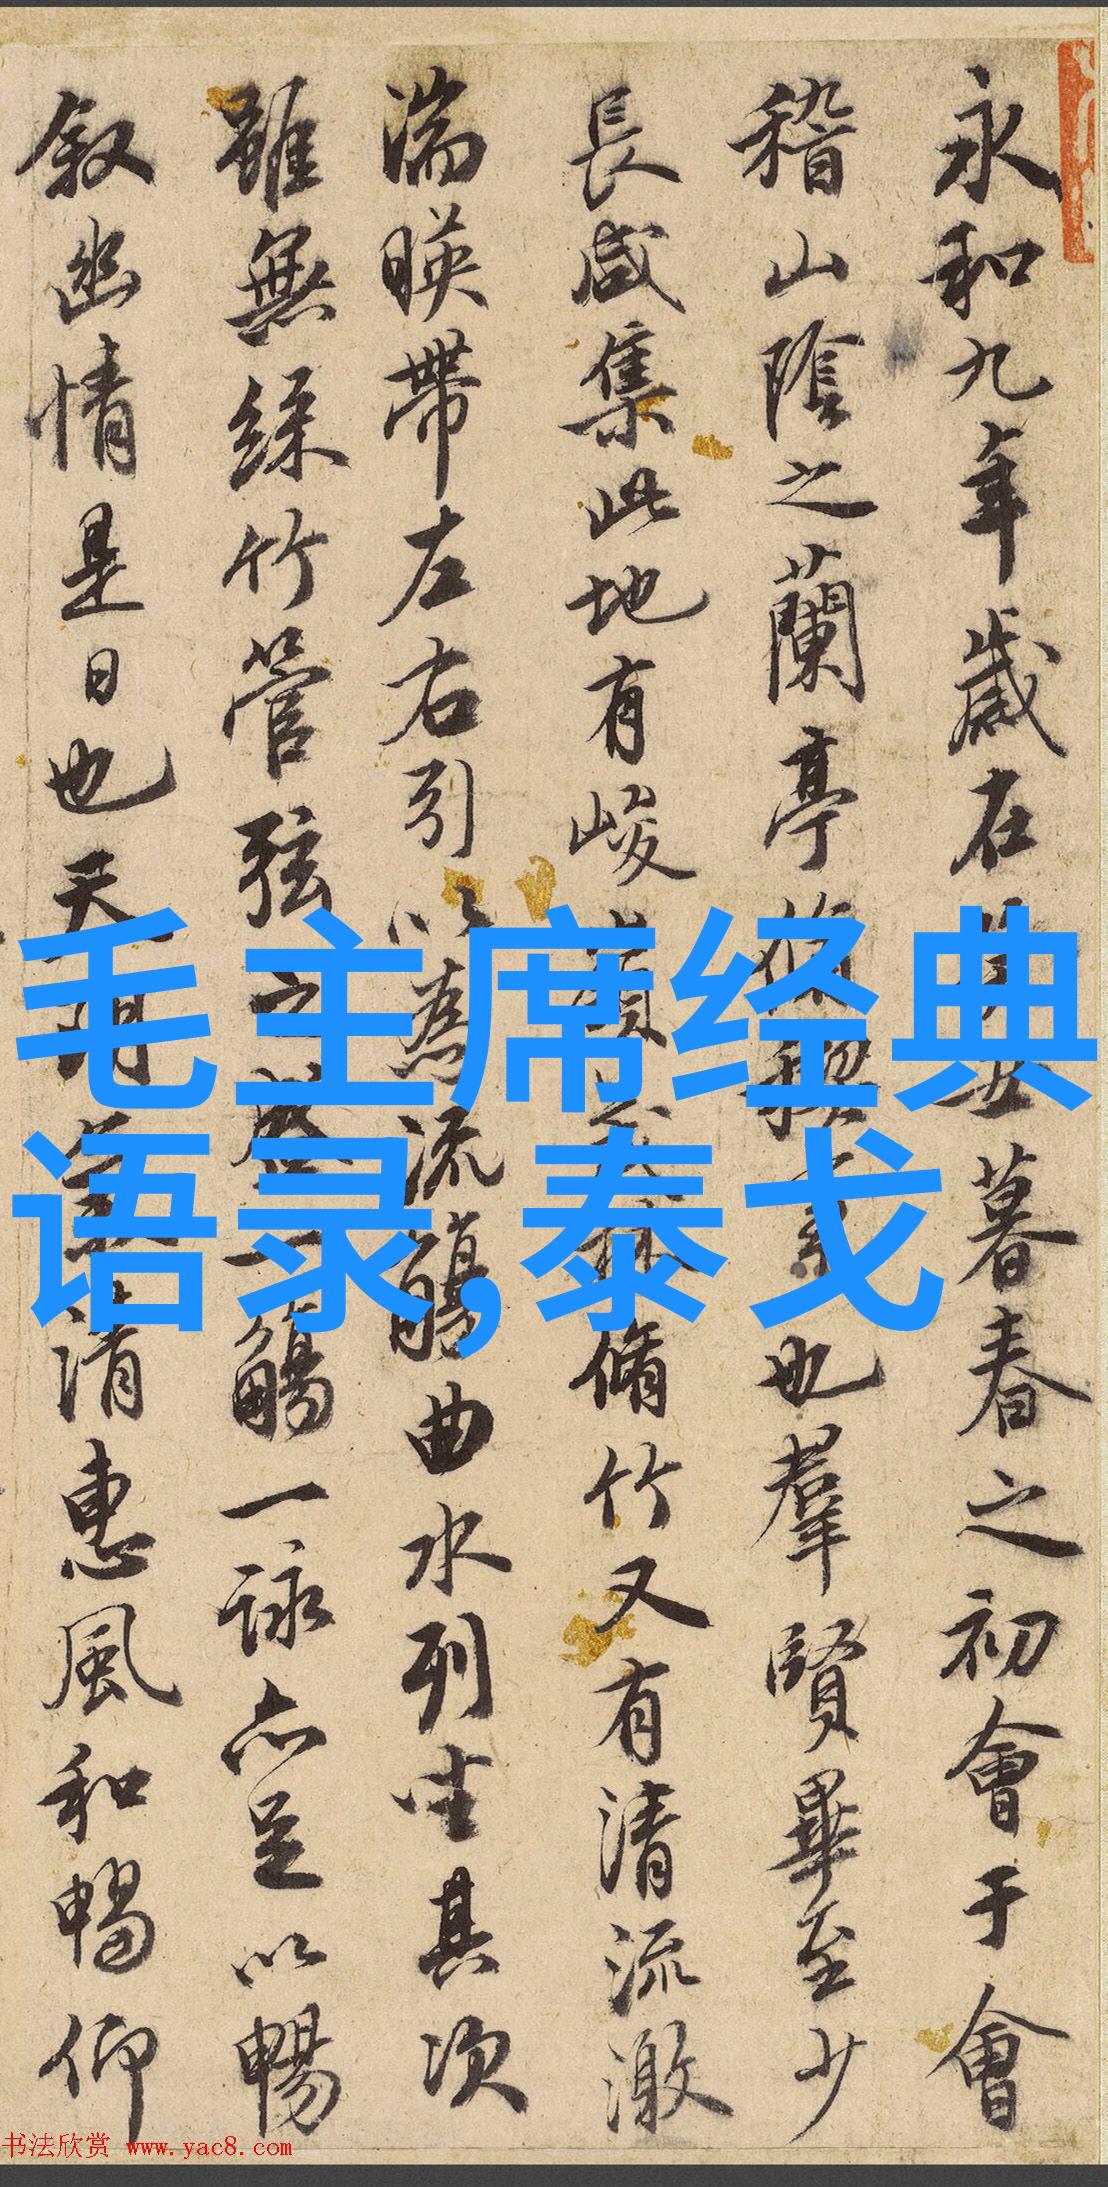 永和九年歲在暮春之初會于會
稽山陰之蘭亭脩稧也羣賢畢至少
長咸集此地有峻領林脩竹又有清流激
湍暎帶左右引以為流觴曲水列坐其次
雖無絲竹管弦之盛一觴一詠亦足以暢
叙幽情是日也天朗清惠風和暢仰
毛主席经典
语录,泰戈
书法欣赏 www.yac8.com